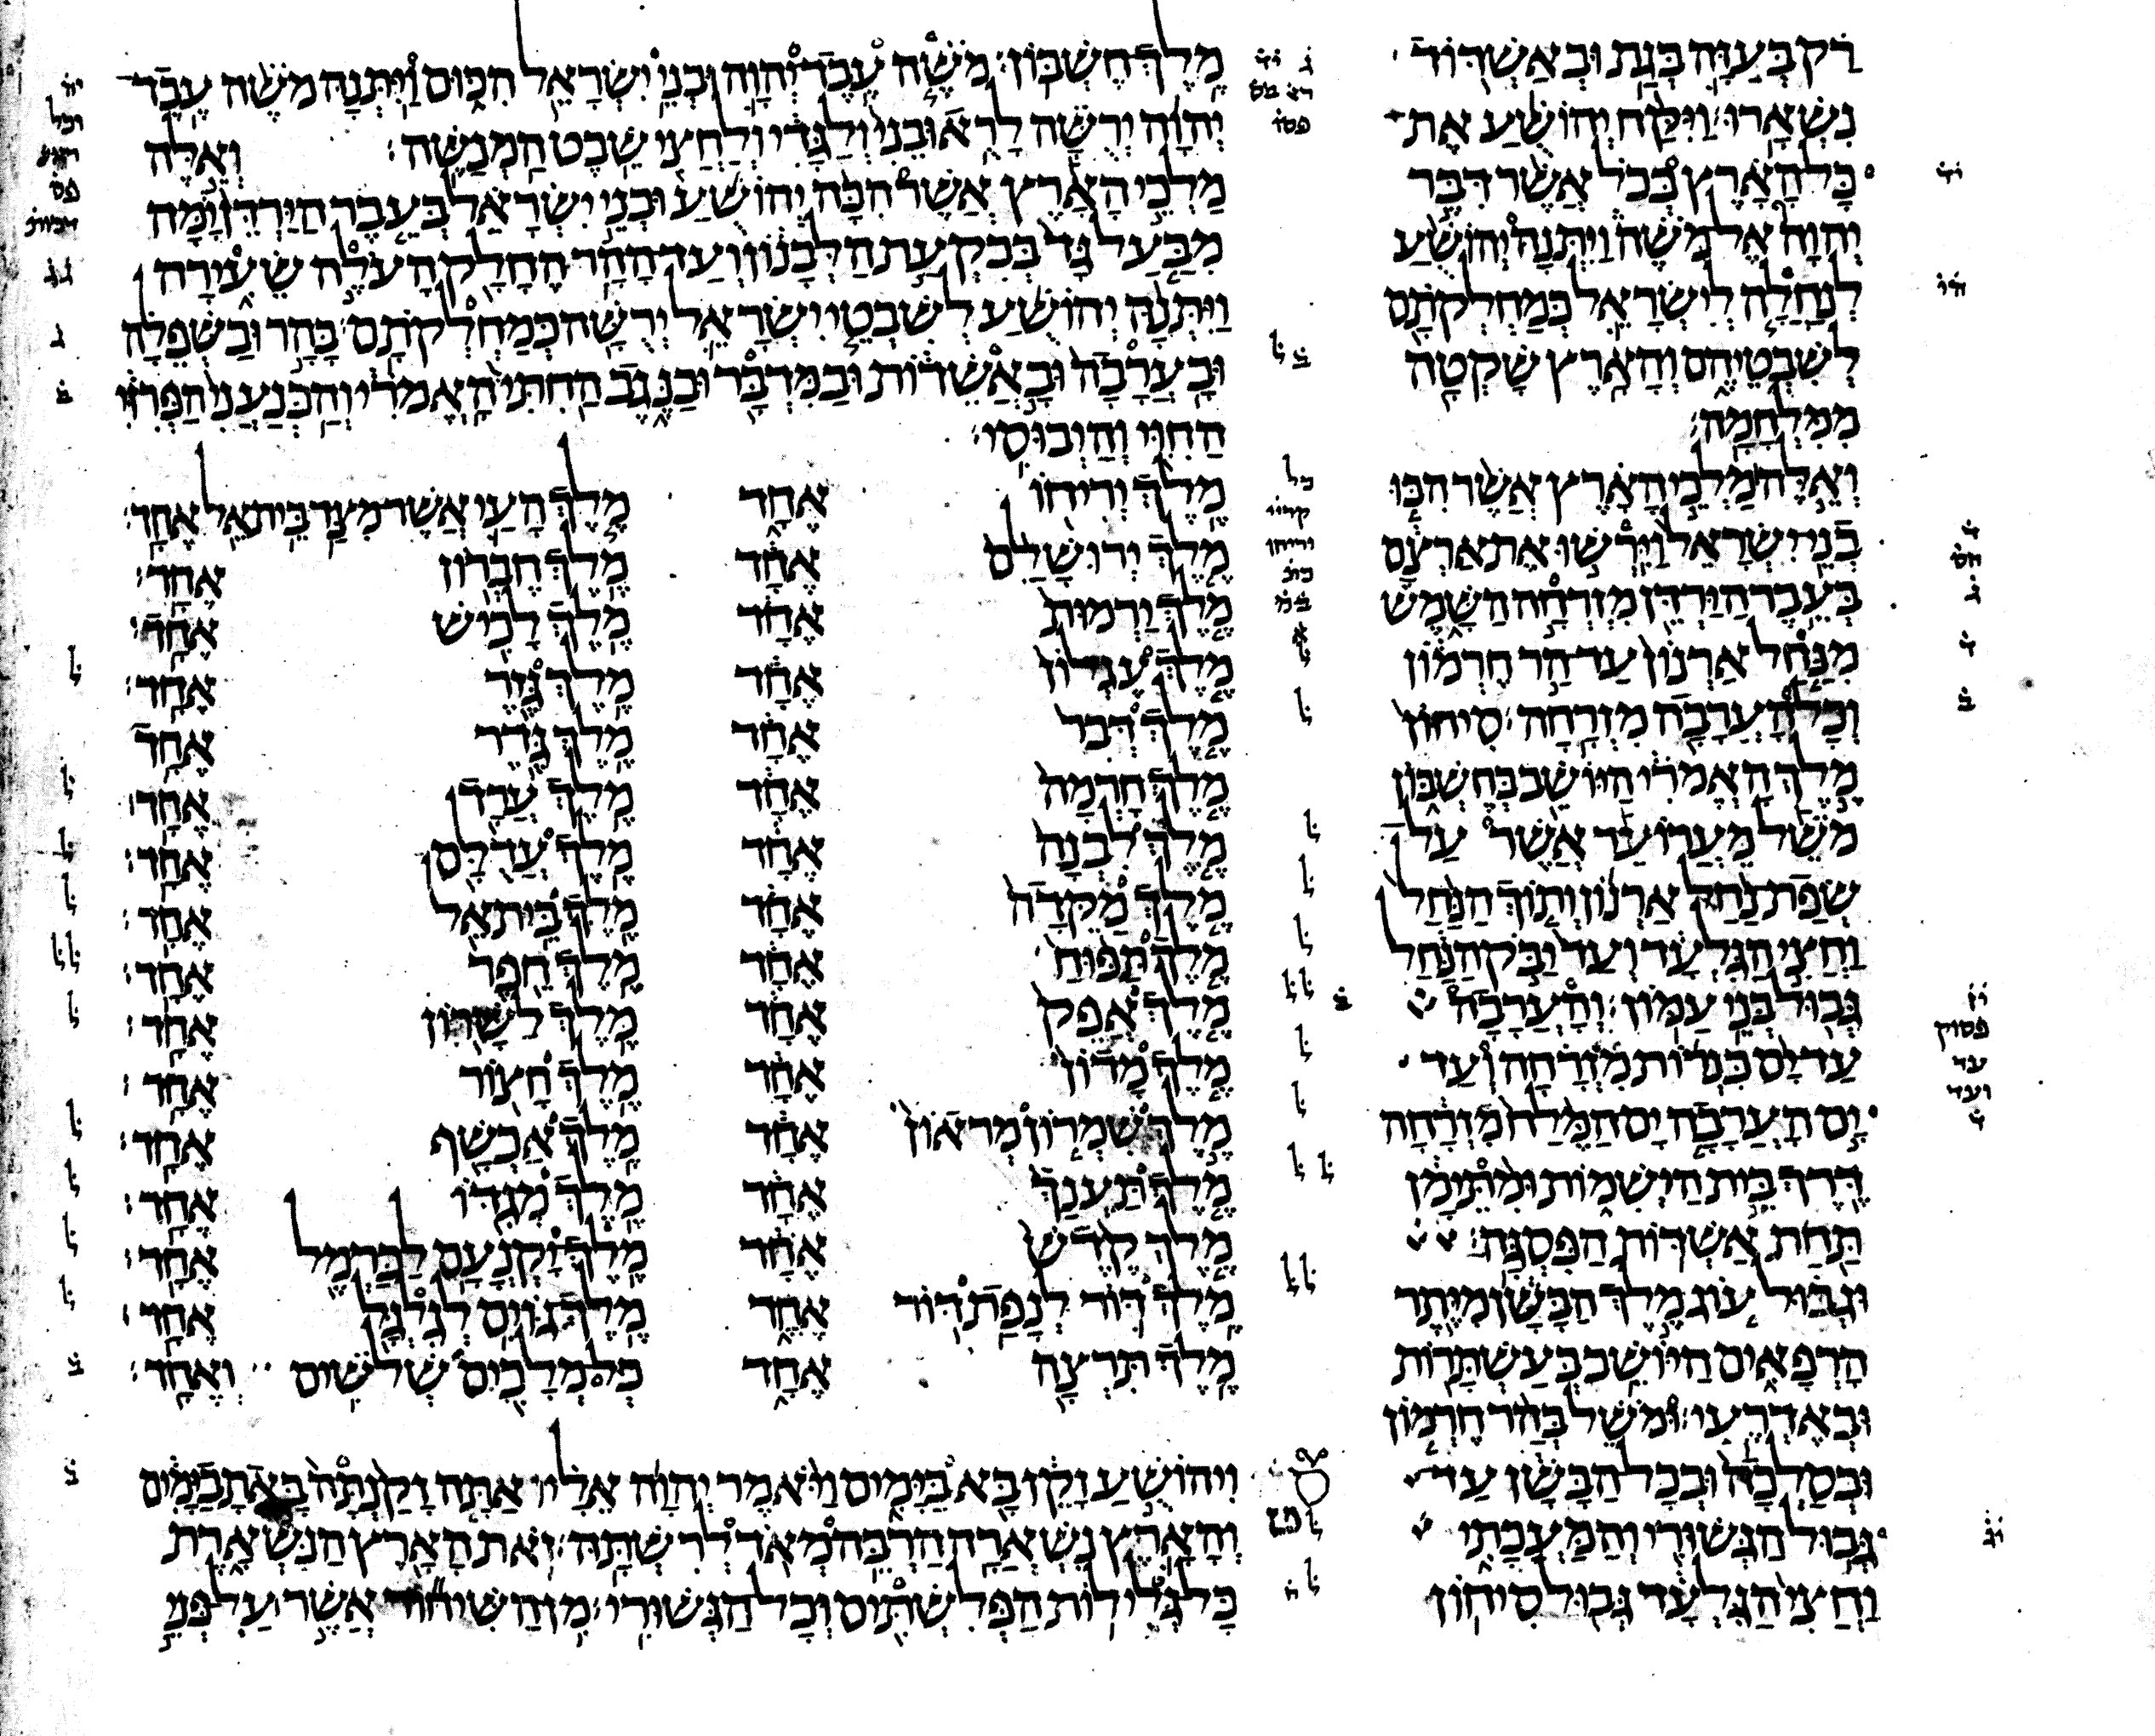 רק בעזה בגת ובאשדוד
נשארו׃ ויקח יהושע את
כל הארץ ככל אשר דבר
יהוה אל משה ויתנה יהושע
לנחלה לישראל כמחלקתם
לשבטיהם והארץ שקטה
ממלחמה׃
ואלה מלכי הארץ אשר הכו
בני ישראל וירשו את ארצם
בעבר הירדן מזרחה השמש
מנחל ארנון עד הר חרמון
וכל הערבה מזרחה׃ סיחון
מלך האמרי היושב בחשבון
משל מערוער אשר על
שפת נחל ארנון ותוך הנחל
וחצי הגלעד ועד יבק הנחל
גבול בני עמון׃ והערבה
עד ים כנרות מזרחה ועד
ים הערבה ים המלח מזרחה
דרך בית הישמות ומתימן
תחת אשדות הפסגה׃
וגבול עוג מלך הבשן מיתר
הרפאים היושב בעשתרות
ובאדרעי׃ ומשל בהר חרמון
ובסלכה ובכל הבשן עד
גבול הגשורי והמעכתי
וחצי הגלעד גבול סיחון
מלך חשבון׃ משה עבד יהוה ובני ישראל הכום ויתנה משה עבד
יהוה ירשה לראובני ולגדי ולחצי שבט המנשה׃ ואלה
מלכי הארץ אשר הכה יהושע ובני ישראל בעבר הירדן ימה
מבעל גד בבקעת הלבנון ועד ההר החלק העלה שעירה
ויתנה יהושע לשבטי ישראל ירשה כמחלקתם׃ בהר ובשפלה
ובערבה ובאשדות ובמדבר ובנגב החתי האמרי והכנעני הפרזי
החוי והיבוסי׃
מלך יריחו אחד מלך העי אשר מצד בית אל אחד׃
מלך ירושלם אחד מלך חברון אחד׃
מלך ירמות אחד מלך לכיש אחד׃
מלך עגלון אחד מלך גזר אחד׃
מלך דבר אחד מלך גדר אחד
מלך חרמה אחד מלך ערד אחד׃
מלך לבנה אחד מלך עדלם אחד׃
מלך מקדה אחד מלך בית אל אחד׃
מלך תפוח אחד מלך חפר אחד׃
מלך אפק אחד מלך לשרון אחד׃
מלך מדון אחד מלך חצור אחד׃
מלך שמרון מראון אחד מלך אכשף אחד׃
מלך תענך אחד מלך מגדו אחד׃
מלך קדש אחד מלך יקנעם לכרמל אחד׃
מלך דור לנפת דור אחד מלך גוים לגלגל אחד׃
מלך תרצה אחד כל מלכים שלשים ואחד׃
ויהושע זקן בא בימים ויאמר יהוה אליו אתה זקנתה באת בימים
והארץ נשארה הרבה מאד לרשתה׃ זאת הארץ הנשארת
כל גלילות הפלשתים וכל הגשורי׃ מן השיחור אשר על פני